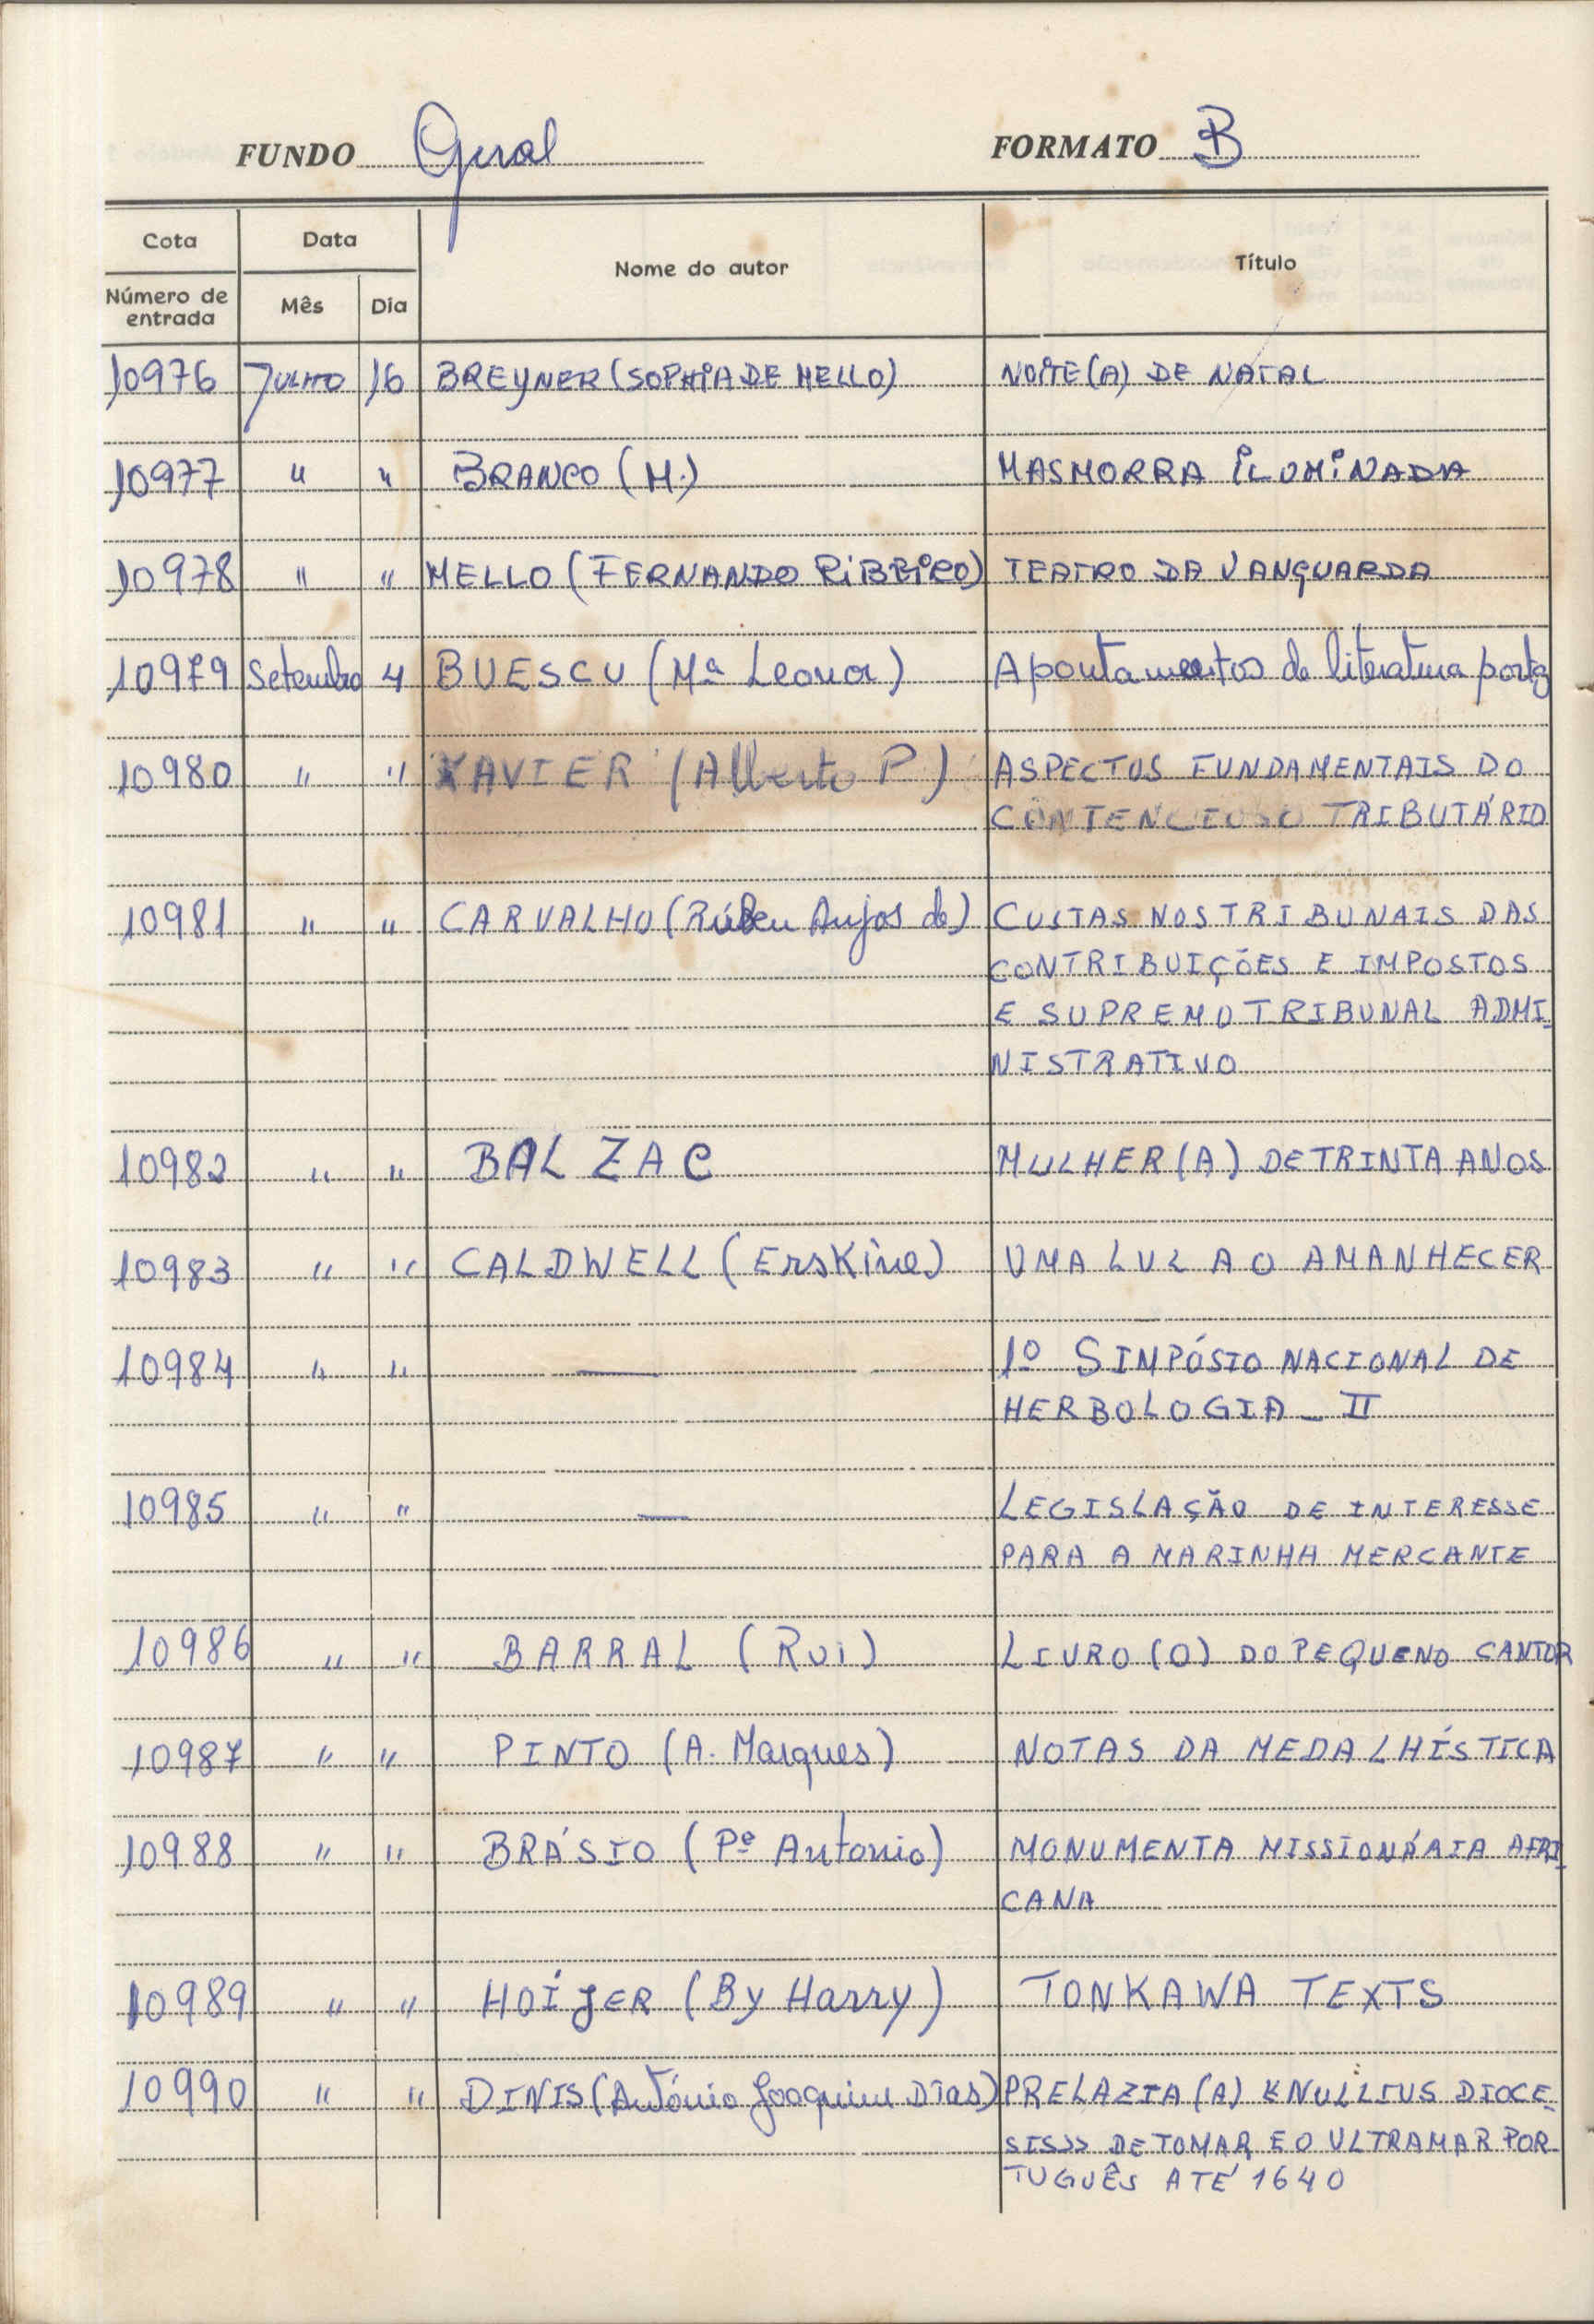 FUNDO Geral FORMATO B
Cota Data Nome do autor Título
Número de entrada Mês Dia
10976 Julho 16 BREYNER (SOPHIA DE MELLO) NOITE (A) DE NATAL
10977 " " BRANCO (M.) MASMORRA ILUMINADA
10978 " " MELLO (FERNANDO RIBEIRO) TEATRO DA VANGUARDA
10979 Setembro 4 BUESCU (Mª Leonor) Apontamentos de literatura portg
10980 " " XAVIER (Alberto P.) ASPECTOS FUNDAMENTAIS DO
CONTENCIOSO TRIBUTÁRIO
10981 " " CARVALHO (Rúben Anjos de) CUSTAS NOS TRIBUNAIS DAS
CONTRIBUIÇÕES E IMPOSTOS
E SUPREMO TRIBUNAL ADMI-
NISTRATIVO
10982 " " BALZAC MULHER (A) DE TRINTA ANOS
10983 " " CALDWELL (Erskine) UMA LUZ AO AMANHECER
10984 " " — 1º SIMPÓSIO NACIONAL DE
HERBOLOGIA - II
10985 " " — LEGISLAÇÃO DE INTERESSE
PARA A MARINHA MERCANTE
10986 " " BARRAL (Rui) LIVRO (O) DO PEQUENO CANTOR
10987 " " PINTO (A. Marques) NOTAS DA MEDALHÍSTICA
10988 " " BRÁSIO (Pe Antonio) MONUMENTA MISSIONÁRIA AFRI
CANA
10989 " " HOIJER (By Harry) TONKAWA TEXTS
10990 " " DINIS (António Joaquim Dias) PRELAZIA (A) «NULLIUS DIOCE-
SIS» DE TOMAR E O ULTRAMAR POR-
TUGUÊS ATÉ 1640